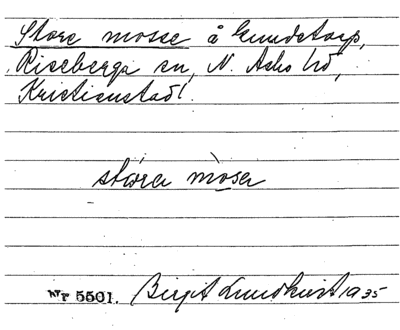 Store mosse å Gundstorp,
Riseberga sn, N. Asbo hd,
Kristianstad l.
stóra mòsa
Nr 5501. Birgit Lundkvist 1935